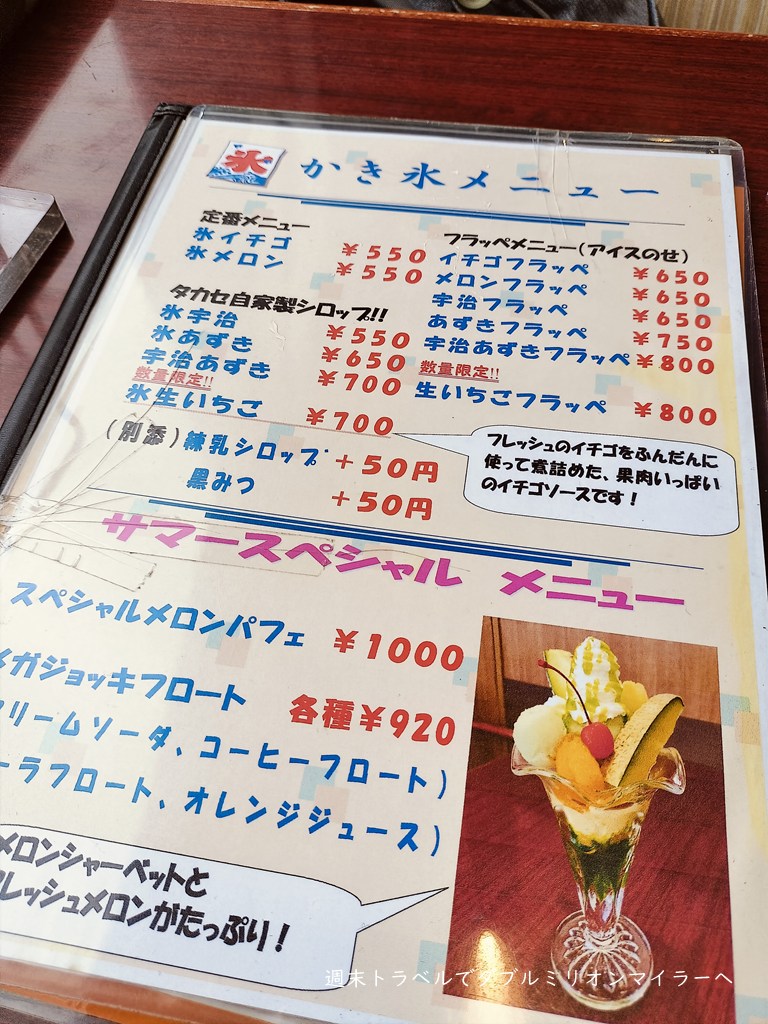 氷
かき氷メニュー
定番メニュー
氷イチゴ ￥550
氷メロン ￥550
タカセ自家製シロップ!!
氷宇治 ￥550
氷あずき ￥650
宇治あずき ￥700
数量限定!!
氷生いちご ￥700
(別添)練乳シロップ +50円
黒みつ +50円
フラッペメニュー(アイスのせ)
イチゴフラッペ ￥650
メロンフラッペ ￥650
宇治フラッペ ￥650
あずきフラッペ ￥750
宇治あずきフラッペ ￥800
数量限定!!
生いちごフラッペ ￥800
フレッシュのイチゴをふんだんに
使って煮詰めた、果肉いっぱい
のイチゴソースです！
サマースペシャル メニュー
スペシャルメロンパフェ ￥1000
メガジョッキフロート 各種￥920
リームソーダ、コーヒーフロート)
ーラフロート、オレンジジュース)
メロンシャーベットと
レッシュメロンがたっぷり！
週末トラベルでダブルミリオンマイラーへ